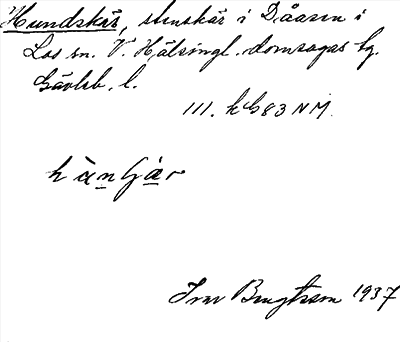 Hundskär, stenskär i Dåasen i
Los sn. V. Hälsingl. domsagas tg.
Gävleb. l.
111. k G 83 NM.
h à n G ä r
Ivar Bengtsson 1937